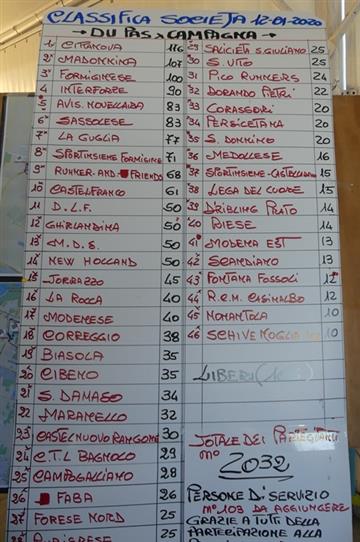 CLASSIFICA SOCIETA 12-01-2020
DU PAS X CAMPAGNA
1° CITTANOVA 116
2° MADONNINA 107
3° FORMIGINESE 100
4° INTERFORZE 90
5° AVIS. NOVELLARA 83
6° SASSOLESE 83
7° LA GUGLIA 77
8° SPORTINSIEME FORMIGINE 71
9° RUNNER-AND-FRIENDS 68
10° CASTELFRANCO 61
11° D.L.F. 50
12° GHIRLANDINA 50
13° M.D.S. 50
14° NEW HOLLAND 50
15° TORRAZZO 45
16° LA ROCCA 40
17° MODENESE 40
18° CORREGGIO 38
19° BIASOLA 35
20° CIBENO 35
21° S. DAMASO 34
22 MARANELLO 32
23° CASTELNUOVO RANGONE 30
24° C.T.L BAGNOLO 29
25° CAMPOGALLIANO 28
26 FABA 26
27 FORESE NORD 25
25
29 SALICETA S. GIULIANO 25
30 S. VITO 25
31 PICO RUNNERS 24
32 DORANDO PIETRI 22
33 CORASSORI 20
34 PERSICETANA 20
35 S. DONNINO 20
36 MEDOLLESE 16
37 SPORTINSIEME-CASTELLARANO 15
38° LEGA DEL CUORE 15
39° DRIBLING PRATO 14
40 RIESE 14
41° MODENA EST 13
42° SCANDIANO 13
43° FONTANA FOSSOLI 12
44° R.C.M. CASINALBO 12
45 NONANTOLA 10
46 SCHIVE MOGLIA 10
LIBERI
TOTALE DEI PARTECIPANTI
N° 2032
PERSONE DI SERVIZIO
N° 103 DA AGGIUNGERE
GRAZIE A TUTTI DELLA
PARTECIPAZIONE ALLA